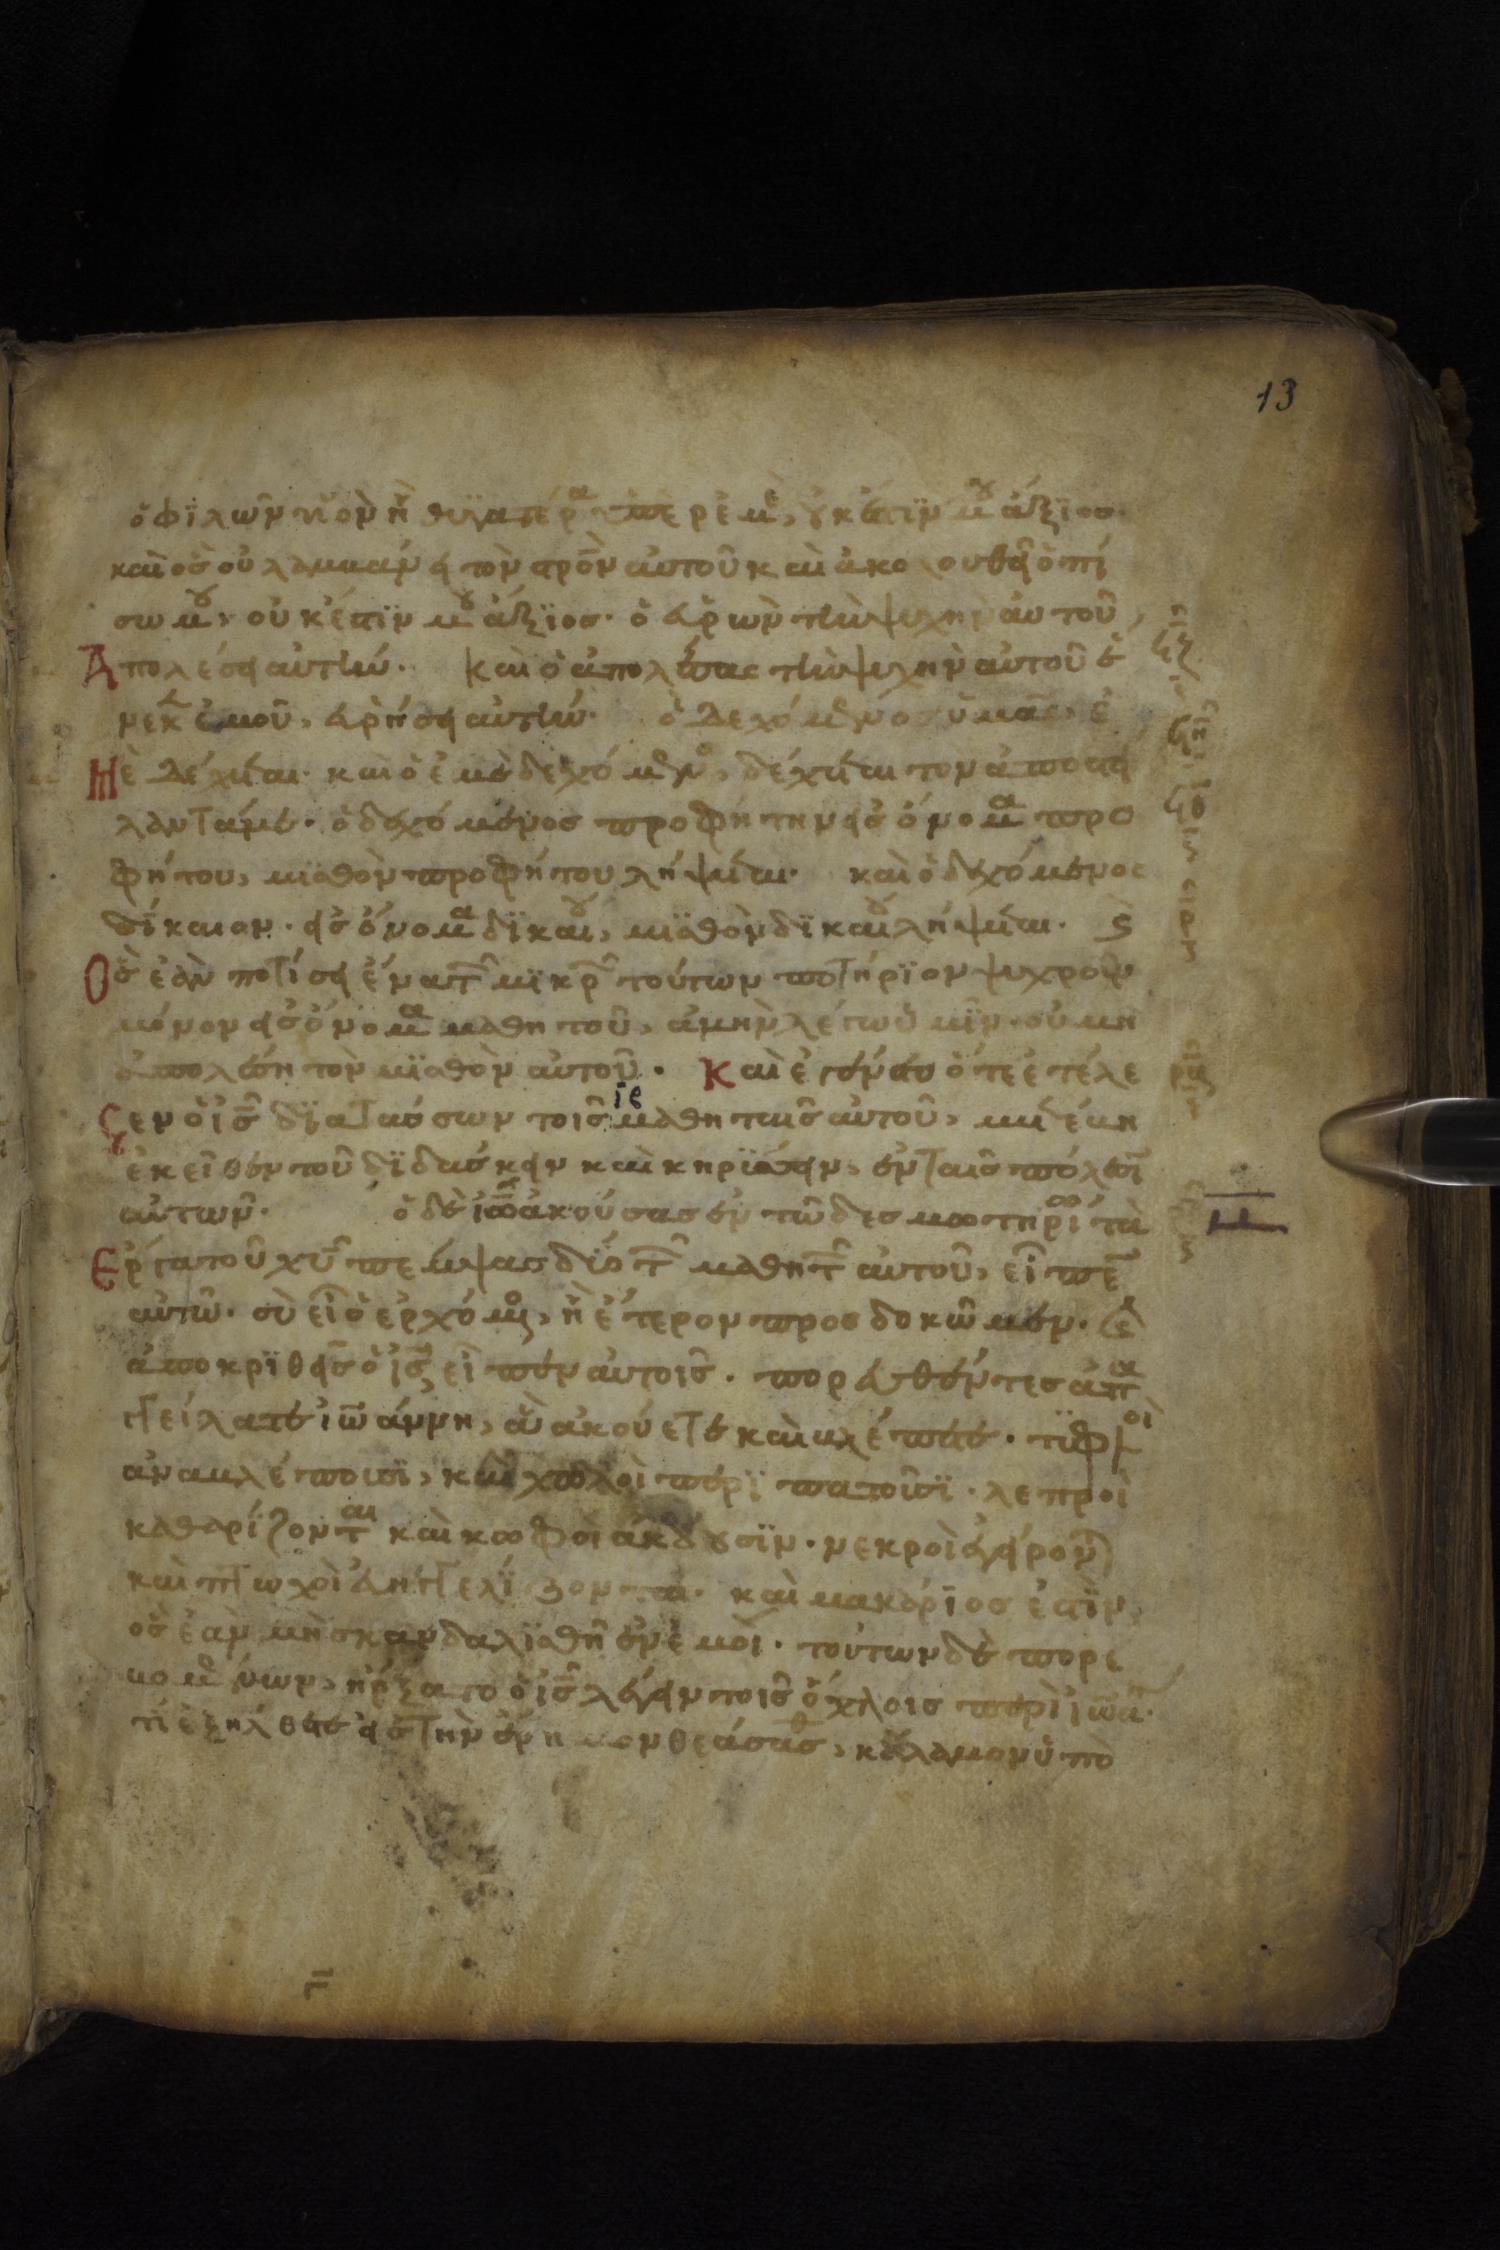 13
ὁ φιλῶν υἱὸν ἢ θυγατέρα ὑπὲρ ἐμὲ, οὐκ ἔστιν μου ἄξιος·
καὶ ὃς οὐ λαμβάνει τὸν σρον αὐτοῦ καὶ ἀκολουθεῖ ὀπί
σω μου, οὐκ ἔστιν μου ἄξιος· ὁ εὑρὼν τὴν ψυχὴν αὐτοῦ,
Ἀπολέσει αὐτήν· καὶ ὁ ἀπολέσας τὴν ψυχὴν αὐτοῦ ἕ
νεκεν ἐμοῦ, εὑρήσει αὐτήν· ὁ δεχόμενος ὑμᾶς, ἐ
Μὲ δέχεται· καὶ ὁ ἐμὲ δεχόμενος, δέχεται τὸν ἀποστεί
λαντά με· ὁ δεχόμενος προφήτην εἰς ὄνομα προ
φήτου, μισθὸν προφήτου λήψεται· καὶ ὁ δεχόμενος
δίκαιον· εἰς ὄνομα δικαίου, μισθὸν δικαίου λήψεται· ϛ
Ὃς ἐὰν ποτίσει ἕνα τῶν μικρῶν τούτων ποτήριον ψυχροῦ
μόνον εἰς ὄνομα μαθητοῦ, ἀμὴν λέγω ὑμῖν· οὐ μὴ
ἀπολέσῃ τὸν μισθὸν αὐτοῦ· Καὶ ἐγένετο ὅτε ἐτέλε
σεν ὁ ις διατάσσων τοῖς ιβ μαθηταῖς αὐτοῦ, μετέβη
ἐκεῖθεν τοῦ διδάσκειν καὶ κηρίσσειν, ἐν ταῖς πόλεσι
αὐτῶν· ὁ δὲ ιωα ἀκούσας ἐν τῷ δεσμωτηρίω τὰ
Ἔργα τοῦ χυ πέμψας δύο τῶν μαθητῶν αὐτοῦ, εἶπεν
αὐτῷ· σὺ εἶ ὁ ἐρχόμενος, ἢ ἕτερον προσδοκῶμεν· καὶ
ἀποκριθεὶς ὁ ις εἶπεν αὐτοῖς· πορευθέντες ἀπαγ
γείλατε ἰωάννη, ἃ ἀκούετε καὶ βλέπετε· τυφλοὶ
ἀναβλέπουσι, καὶ χωλοὶ περιπατοῦσι· λεπροὶ
καθαρίζονται καὶ κωφοὶ ἀκούουσιν· νεκροὶ ἐγείρον
καὶ πτωχοὶ εὐηγγελίζονται· καὶ μακάριος ἐστὶν
ὃς ἐὰν μὴ σκανδαλισθῇ ἐν ἐμοί· τούτων δὲ πορε
υομένων, ἤρξατο ὁ ις λέγειν τοῖς ὄχλοις περὶ ιωα·
τί ἐξήλθετε εἰς τὴν ἔρημον θεάσασθαι, κάλαμον ὑπὸ